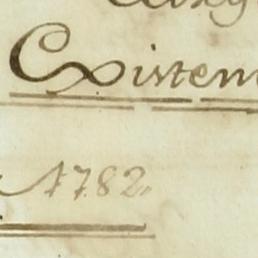 Existen
1782.